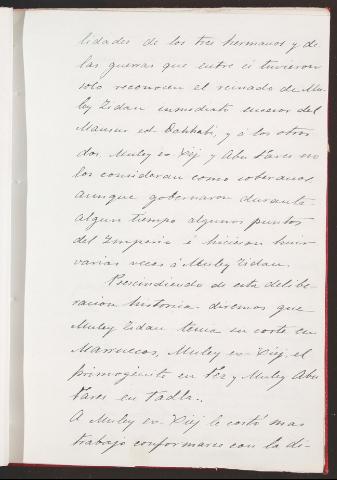 lidades de los tres hermanos y de
las guerras que entre sí tuvieron
solo reconocen el reinado de Mu-
ley Zidan inmediato sucesor del
Mansur ed-Dahhabi, y á los otros
dos Muley ex-Xiej y Abu Fares no
los consideran como soberanos,
aunque gobernaron durante
algun tiempo algunos puntos
del Imperio é hicieron huir
varias veces á Muley Zidan.
Prescindiendo de esta delibe-
racion historica diremos que
Muley Zidan tenia su corte en
Marruecos, Muley ex-Xiej, el
primogénito en Fez y Muley Abu
Fares en Tadla.
A Muley ex-Xiej le costó mas
trabajo conformarse con la di-